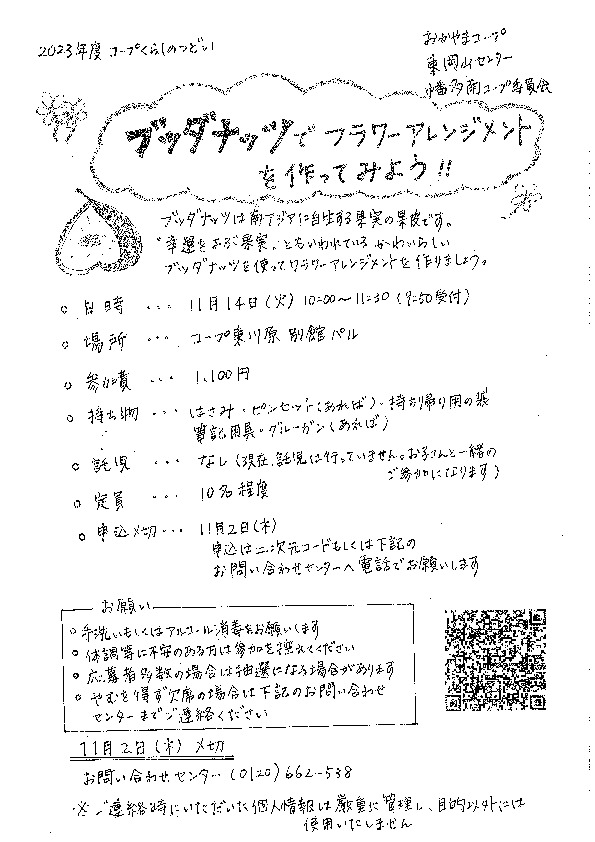 2023年度 コープくらしのつどい
おかやまコープ
東岡山センター
幡多南コープ委員会
ブッダナッツでフラワーアレンジメント
を作ってみよう!!
ブッダナッツは南アジアに自生する果実の果皮です。
"幸運をよぶ果実"ともいわれているかわいらしい
ブッダナッツを使ってフラワーアレンジメントを作りましょう。
○ 日時 ・・・ 11月14日(火) 10:00～11:30 (9:50受付)
○ 場所 ・・・ コープ東川原 別館パル
○ 参加費 ・・・ 1,100円
○ 持ち物 ・・・ はさみ・ピンセット(あれば)・持ち帰り用の袋
筆記用具・グルーガン(あれば)
○ 託児 ・・・ なし (現在、託児は行っていません。お子さんと一緒の
ご参加になります)
○ 定員 ・・・ 10名程度
○ 申込〆切 ・・・ 11月2日(木)
申込は二次元コードもしくは下記の
お問い合わせセンターへ電話でお願いします
お願い
○ 手洗いもしくはアルコール消毒をお願いします
○ 体調等に不安のある方は参加を控えてください
○ 応募者多数の場合は抽選になる場合があります
○ やむを得ず欠席の場合は下記のお問い合わせ
センターまでご連絡ください
11月2日(木) 〆切
お問い合わせセンター (0120) 662-538
※ ご連絡時にいただいた個人情報は厳重に管理し、目的以外には
使用いたしません